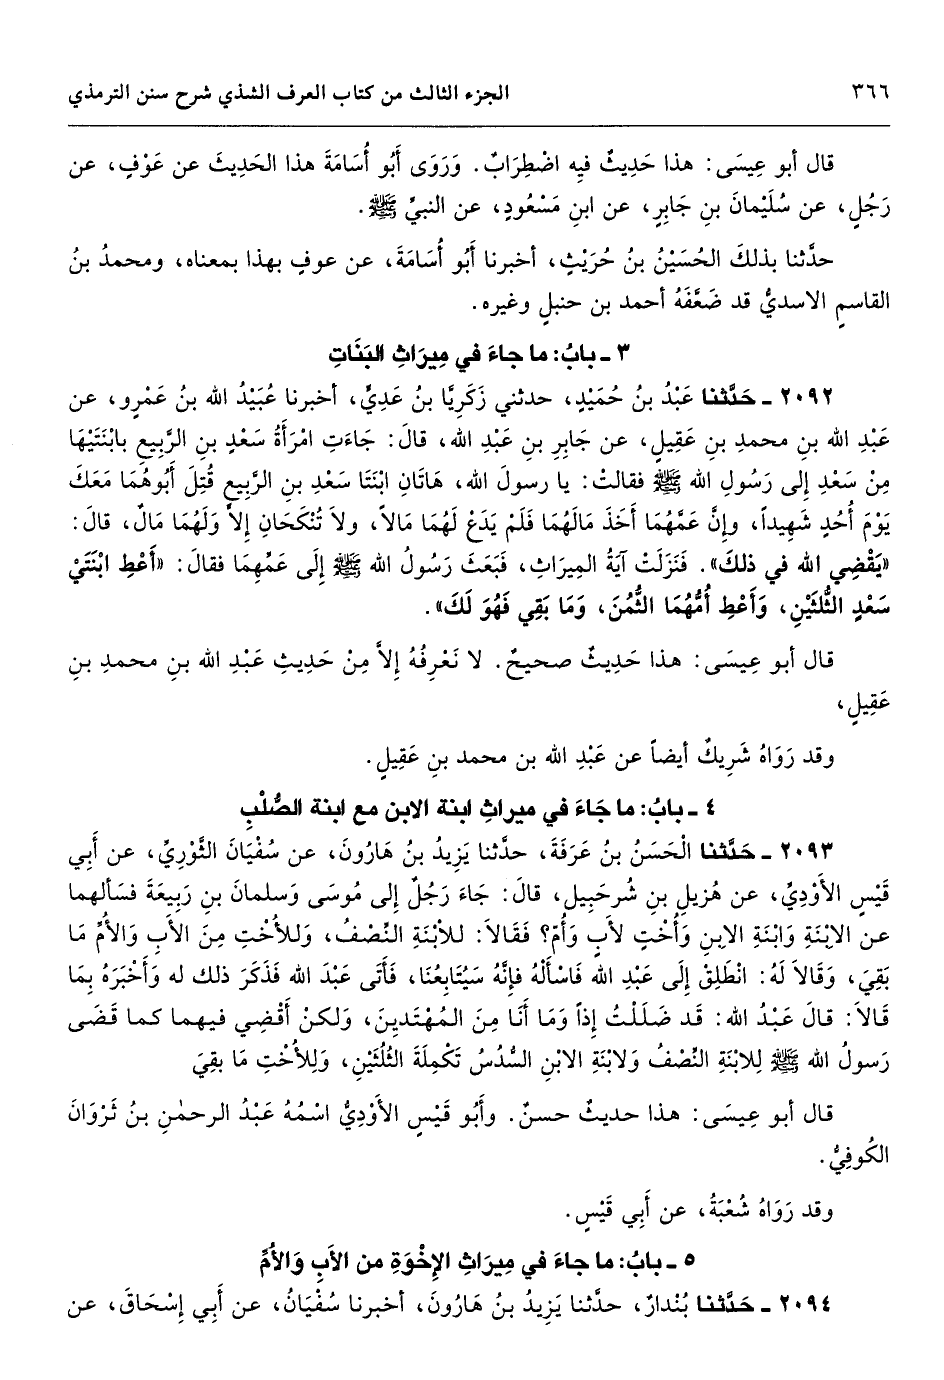 ٣٦٦ الجزء الثالث من كتاب العرف الشذي شرح سنن الترمذي
قال أبو عِيسَى: هذا حَدِيثٌ فيِه اضْطِرَابٌ. وَرَوَى أَبُو أُسَامَةَ هذا الحَدِيثَ عن عَوْفٍ، عن
رَجُلٍ، عن سُلَيْمانَ بنِ جَابِرٍ، عن ابنِ مَسْعُودٍ، عن النبيِّ ﷺ.
حدَّثنا بذلكَ الحُسَيْنُ بنُ حُرَيْثٍ، أخبرنا أَبُو أُسَامَةَ، عن عوفٍ بهذا بمعناه، ومحمدُ بنُ
القاسمِ الاسديُّ قد ضَعَّفَهُ أحمد بن حنبلٍ وغيره.
٣ ـ بابُ: ما جاءَ في مِيرَاثِ البَنَاتِ
٢٠٩٢ ـ حَدَّثنا عَبْدُ بنُ حُمَيْدٍ، حدثني زَكَرِيَّا بنُ عَدِيٍّ، أخبرنا عُبَيْدُ الله بنُ عَمْرٍو، عن
عَبْدِ الله بنِ محمدِ بنِ عَقِيلٍ، عن جَابِرِ بنِ عَبْدِ الله، قالَ: جَاءَتِ امْرَأَةُ سَعْدِ بنِ الرَّبِيعِ بابْنَتَيْهَا
مِنْ سَعْدٍ إلى رَسُولِ الله ﷺ فقالتْ: يا رسولَ الله، هَاتَانِ ابْنَتَا سَعْدِ بنِ الرَّبِيعِ قُتِلَ أَبُوهُمَا مَعَكَ
يَوْمَ أُحُدٍ شَهِيداً، وإنَّ عَمَّهُمَا أَخَذَ مَالَهُمَا فَلَمْ يَدَعْ لَهُمَا مَالاً، ولاَ تُنْكَحَانِ إلاَّ وَلَهُمَا مَالٌ، قالَ:
«يَقْضِي الله في ذلكَ». فَنَزَلَتْ آيَةُ المِيرَاثِ، فَبَعَثَ رَسُولُ الله ﷺ إلَى عَمِّهِمَا فقالَ: «أَعْطِ ابْنَتَيْ
سَعْدٍ الثُّلثَيْنِ، وَأَعْطِ أُمَّهُمَا الثُّمُنَ، وَمَا بَقِي فَهُوَ لَكَ».
قال أبو عِيسَى: هذا حَدِيثٌ صحيحٌ. لا نَعْرِفُهُ إلاَّ مِنْ حَدِيثِ عَبْدِ الله بنِ محمدِ بنِ
عَقِيلٍ،
وقد رَوَاهُ شَرِيكٌ أيضاً عن عَبْدِ الله بن محمد بنِ عَقِيلٍ.
٤ ـ بابُ: ما جَاءَ في ميراثِ ابنة الابن مع ابنة الصُّلْبِ
٢٠٩٣ ـ حَدَّثنا الْحَسَنُ بنُ عَرَفَةَ، حدَّثنا يَزِيدُ بنُ هَارُونَ، عن سُفْيَانَ الثَّوْرِيِّ، عن أَبِي
قَيْسٍ الأَوْدِيِّ، عن هُزيلِ بنِ شُرحَبِيلَ، قالَ: جَاءَ رَجُلٌ إلى مُوسَى وَسلمانَ بنِ رَبِيعَةَ فسَألهما
عن الابْنَةِ وَابْنَةِ الابنِ وَأُخْتٍ لأَبٍ وَأُم؟ فَقَالاَ: للابْنَةِ النِّصْفُ، وَللأُخْتِ مِنَ الأبِ وَالأُمِّ مَا
بَقِيَ، وَقَالاَ لَهُ: انْطَلِقْ إلَى عَبْدِ الله فَاسْأَلْهُ فإنَّهُ سَيُتَابِعُنَا، فَأَتَى عَبْدَ الله فَذَكَرَ ذلك له وَأَخْبَرَهُ بِمَا
قَالاَ: قالَ عَبْدُ الله: قَد ضَلَلْتُ إذاً وَمَا أَنَا مِنَ المُهْتَدينَ، وَلكنْ أَقْضِي فيهما كما قَضَى
رَسولُ الله ﷺ لِلابْنَةِ النِّصْفُ وَلابْنَةِ الابْنِ السُّدُسُ تَكْمِلَةَ الثُلُثَيْنِ، وَلِلأُخْتِ مَا بقِيَ
قال أبو عِيسَى: هذا حديثٌ حسنٌ. وأَبُو قَيْسٍ الأَوْدِيُّ اسْمُهُ عَبْدُ الرحمٰنِ بنُ ثَرْوَانَ
الكُوفِيُّ.
وقد رَوَاهُ شُعْبَةُ، عن أَبِي قَيْسٍ.
٥ ـ بابُ: ما جاءَ في مِيرَاثِ الإِخْوَةِ من الأَبِ وَالأُمِّ
٢٠٩٤ ـ حَدَّثنا بُنْدارٌ، حدَّثنا يَزِيدُ بنُ هَارُونَ، أخبرنا سُفْيَانُ، عن أَبِي إسْحَاقَ، عن